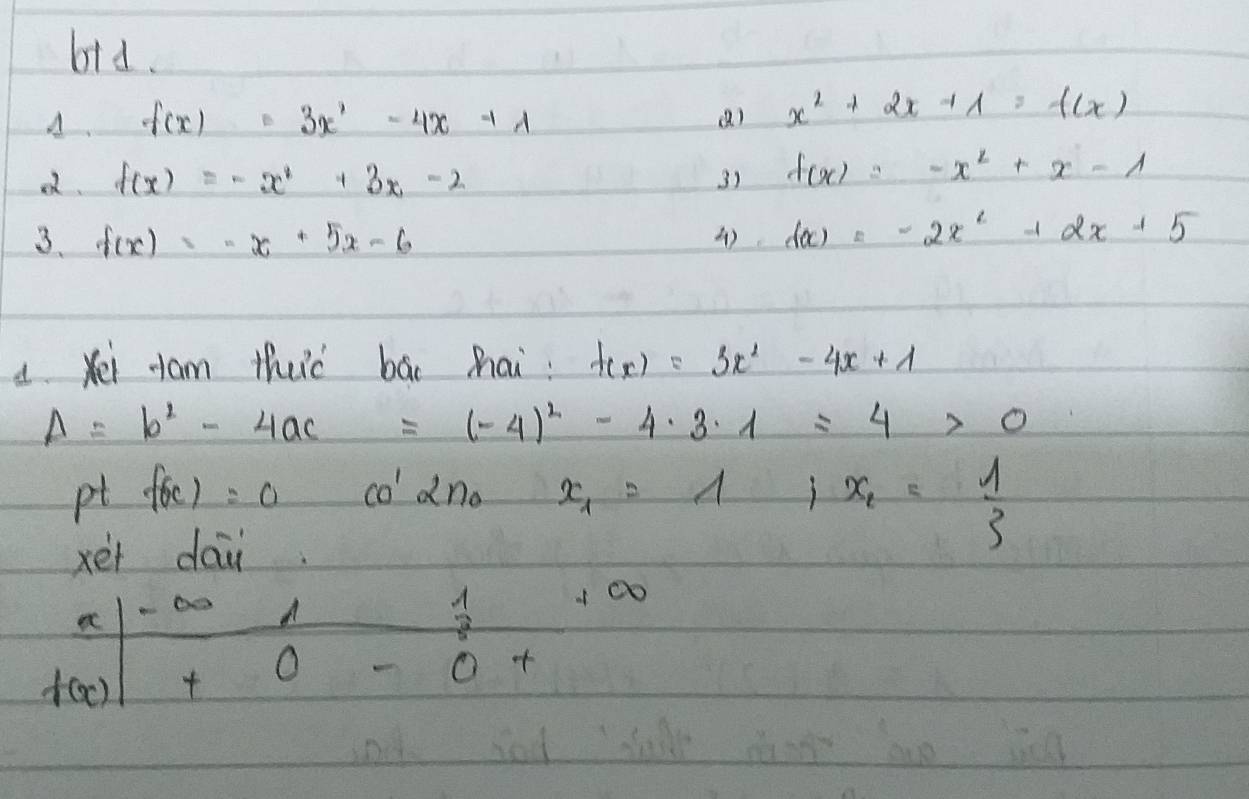 btd.
1. f(x) = 3x² - 4x + 1
2) x² + 2x + 1 = f(x)
2. f(x) = - x² + 3x - 2
3) f(x) = -x² + x - 1
3. f(x) = - x + 5x - 6
4) f(x) = -2x² + 2x + 5
1. Xét tam thức bậc hai : f(x) = 3x² - 4x + 1
Δ = b² - 4ac = (-4)² - 4.3.1 = 4 > 0
pt f(x) = 0 có 2 no x₁ = 1 ; x₂ = 1/3
xét dấu .
x | -∞ 1 1/3 +∞
f(x) | + 0 - 0 +